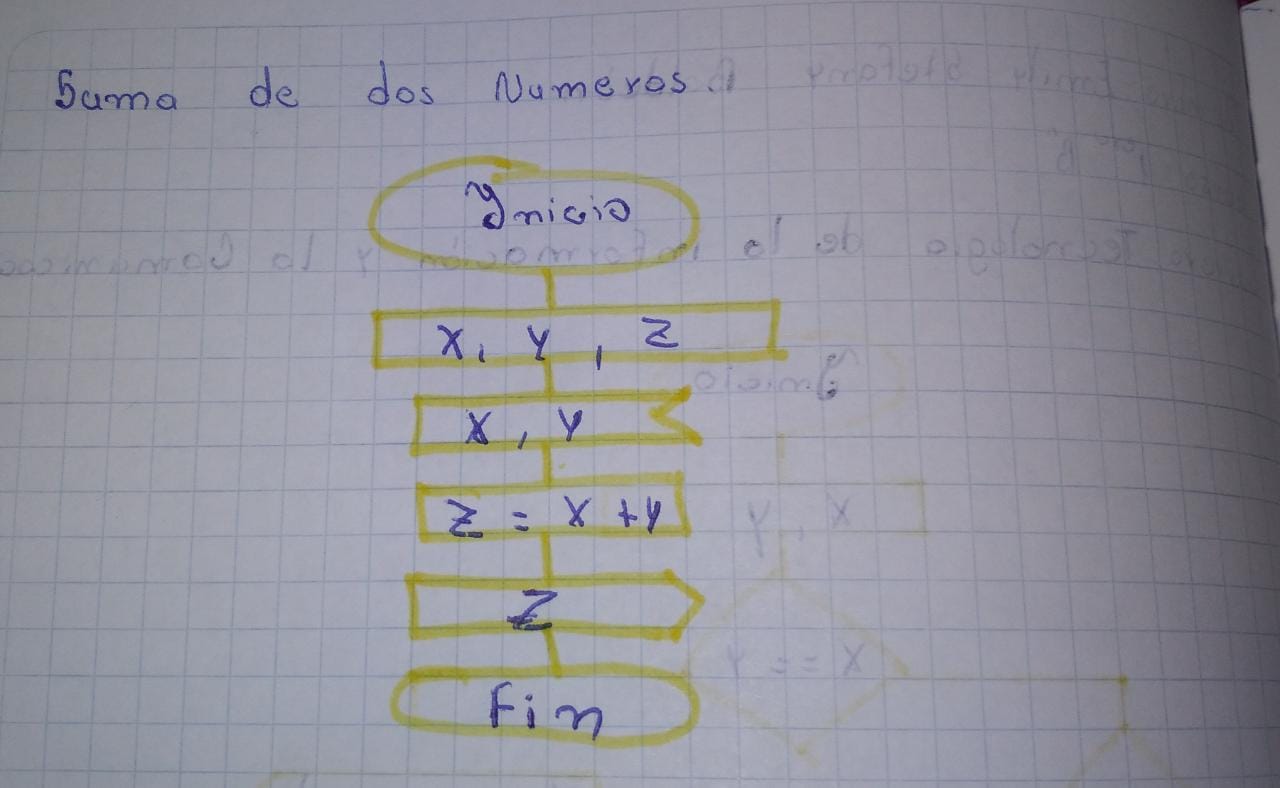 Suma de dos Numeros.
Ynicio
X, Y, Z
X, Y
Z = X + Y
Z
Fin